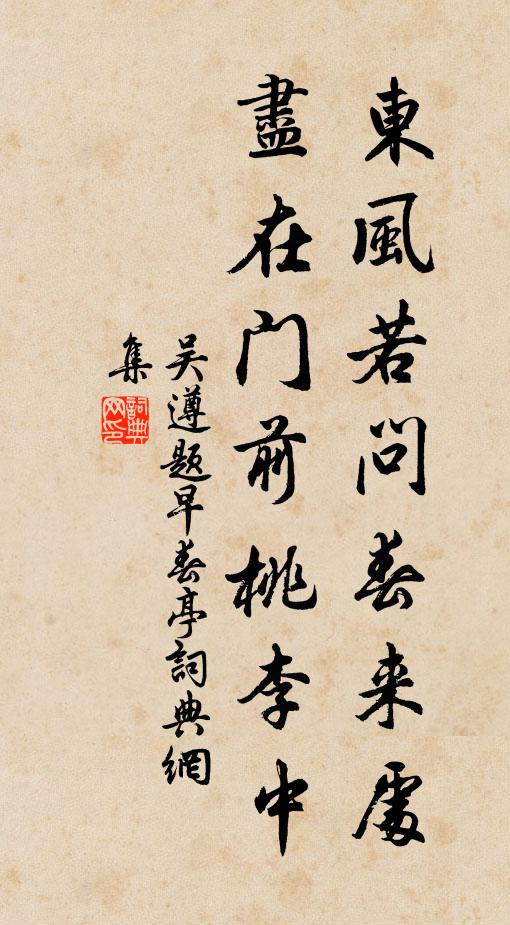 東風若問春来處
盡在门前桃李中
吴遵题早春亭詞典網
集
詞典網印